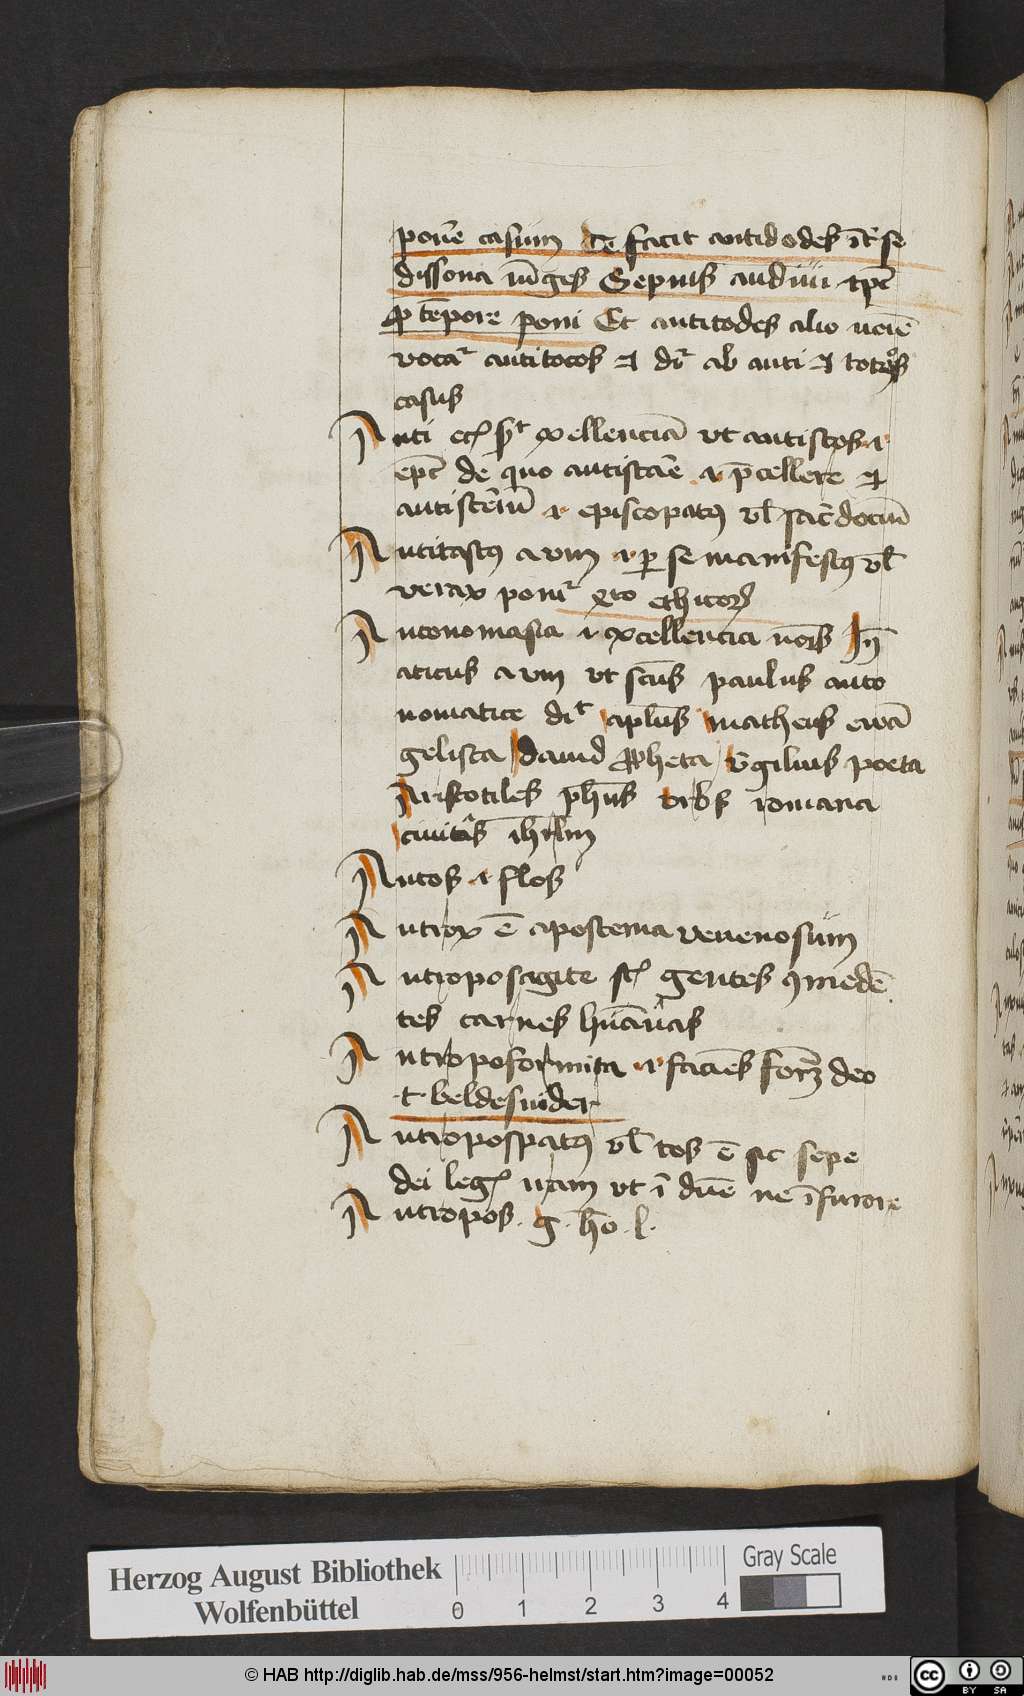 ponẽ casum Te facit antidodes īt' se
dissona iūges Sepius audiui tpē
ꝓ tempore poni Et antitodes alio noīe
vocat' antitocos et dr̄ ab anti et totos
casus
Anti ecī sr̄t excellenciā vt antistes i
epc̄ de quo antistāre i p̄cellere et
antistēiū i episcopatus vl̄ sac̄dociū
Antitastus a vm i per se manifestus vl̄
verax ponit' qrto ethicorꝫ
Antonomasia i excellencia nōis Jn̄
aticus a vm vt sctūs paulus anto
nomatice dr̄t apl̄us matheus ewā
gelista dauid ꝓpheta v̄gilius poeta
Aristotiles ph̄us vrbs romana
ciuitās ih̄rlm
Antos i flos
Antrax ē apostema venenosum
Antroposagite st̄ gentes ꝯmedē
tes carnes hūanas
Antropoformita i faciēs formā deo
t beldesnider
Antropospatus vl̄ tos ē sic sepe
dei leḡ nam vt ī dn̄e ne ī furore
Antropos. g. ho. l.
Herzog August Bibliothek
Wolfenbüttel
0 1 2 3 4
Gray Scale
© HAB http://diglib.hab.de/mss/956-helmst/start.htm?image=00052
cc BY SA